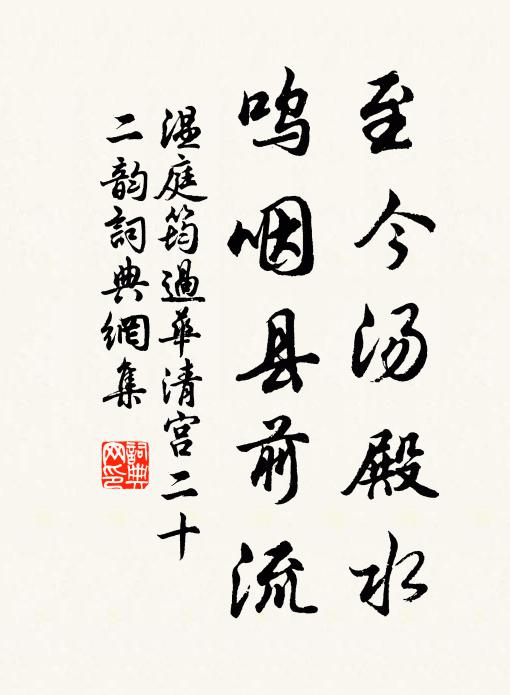 至今汤殿水
呜咽县前流
温庭筠過华清宫二十
二韵詞典網集
詞典
网印